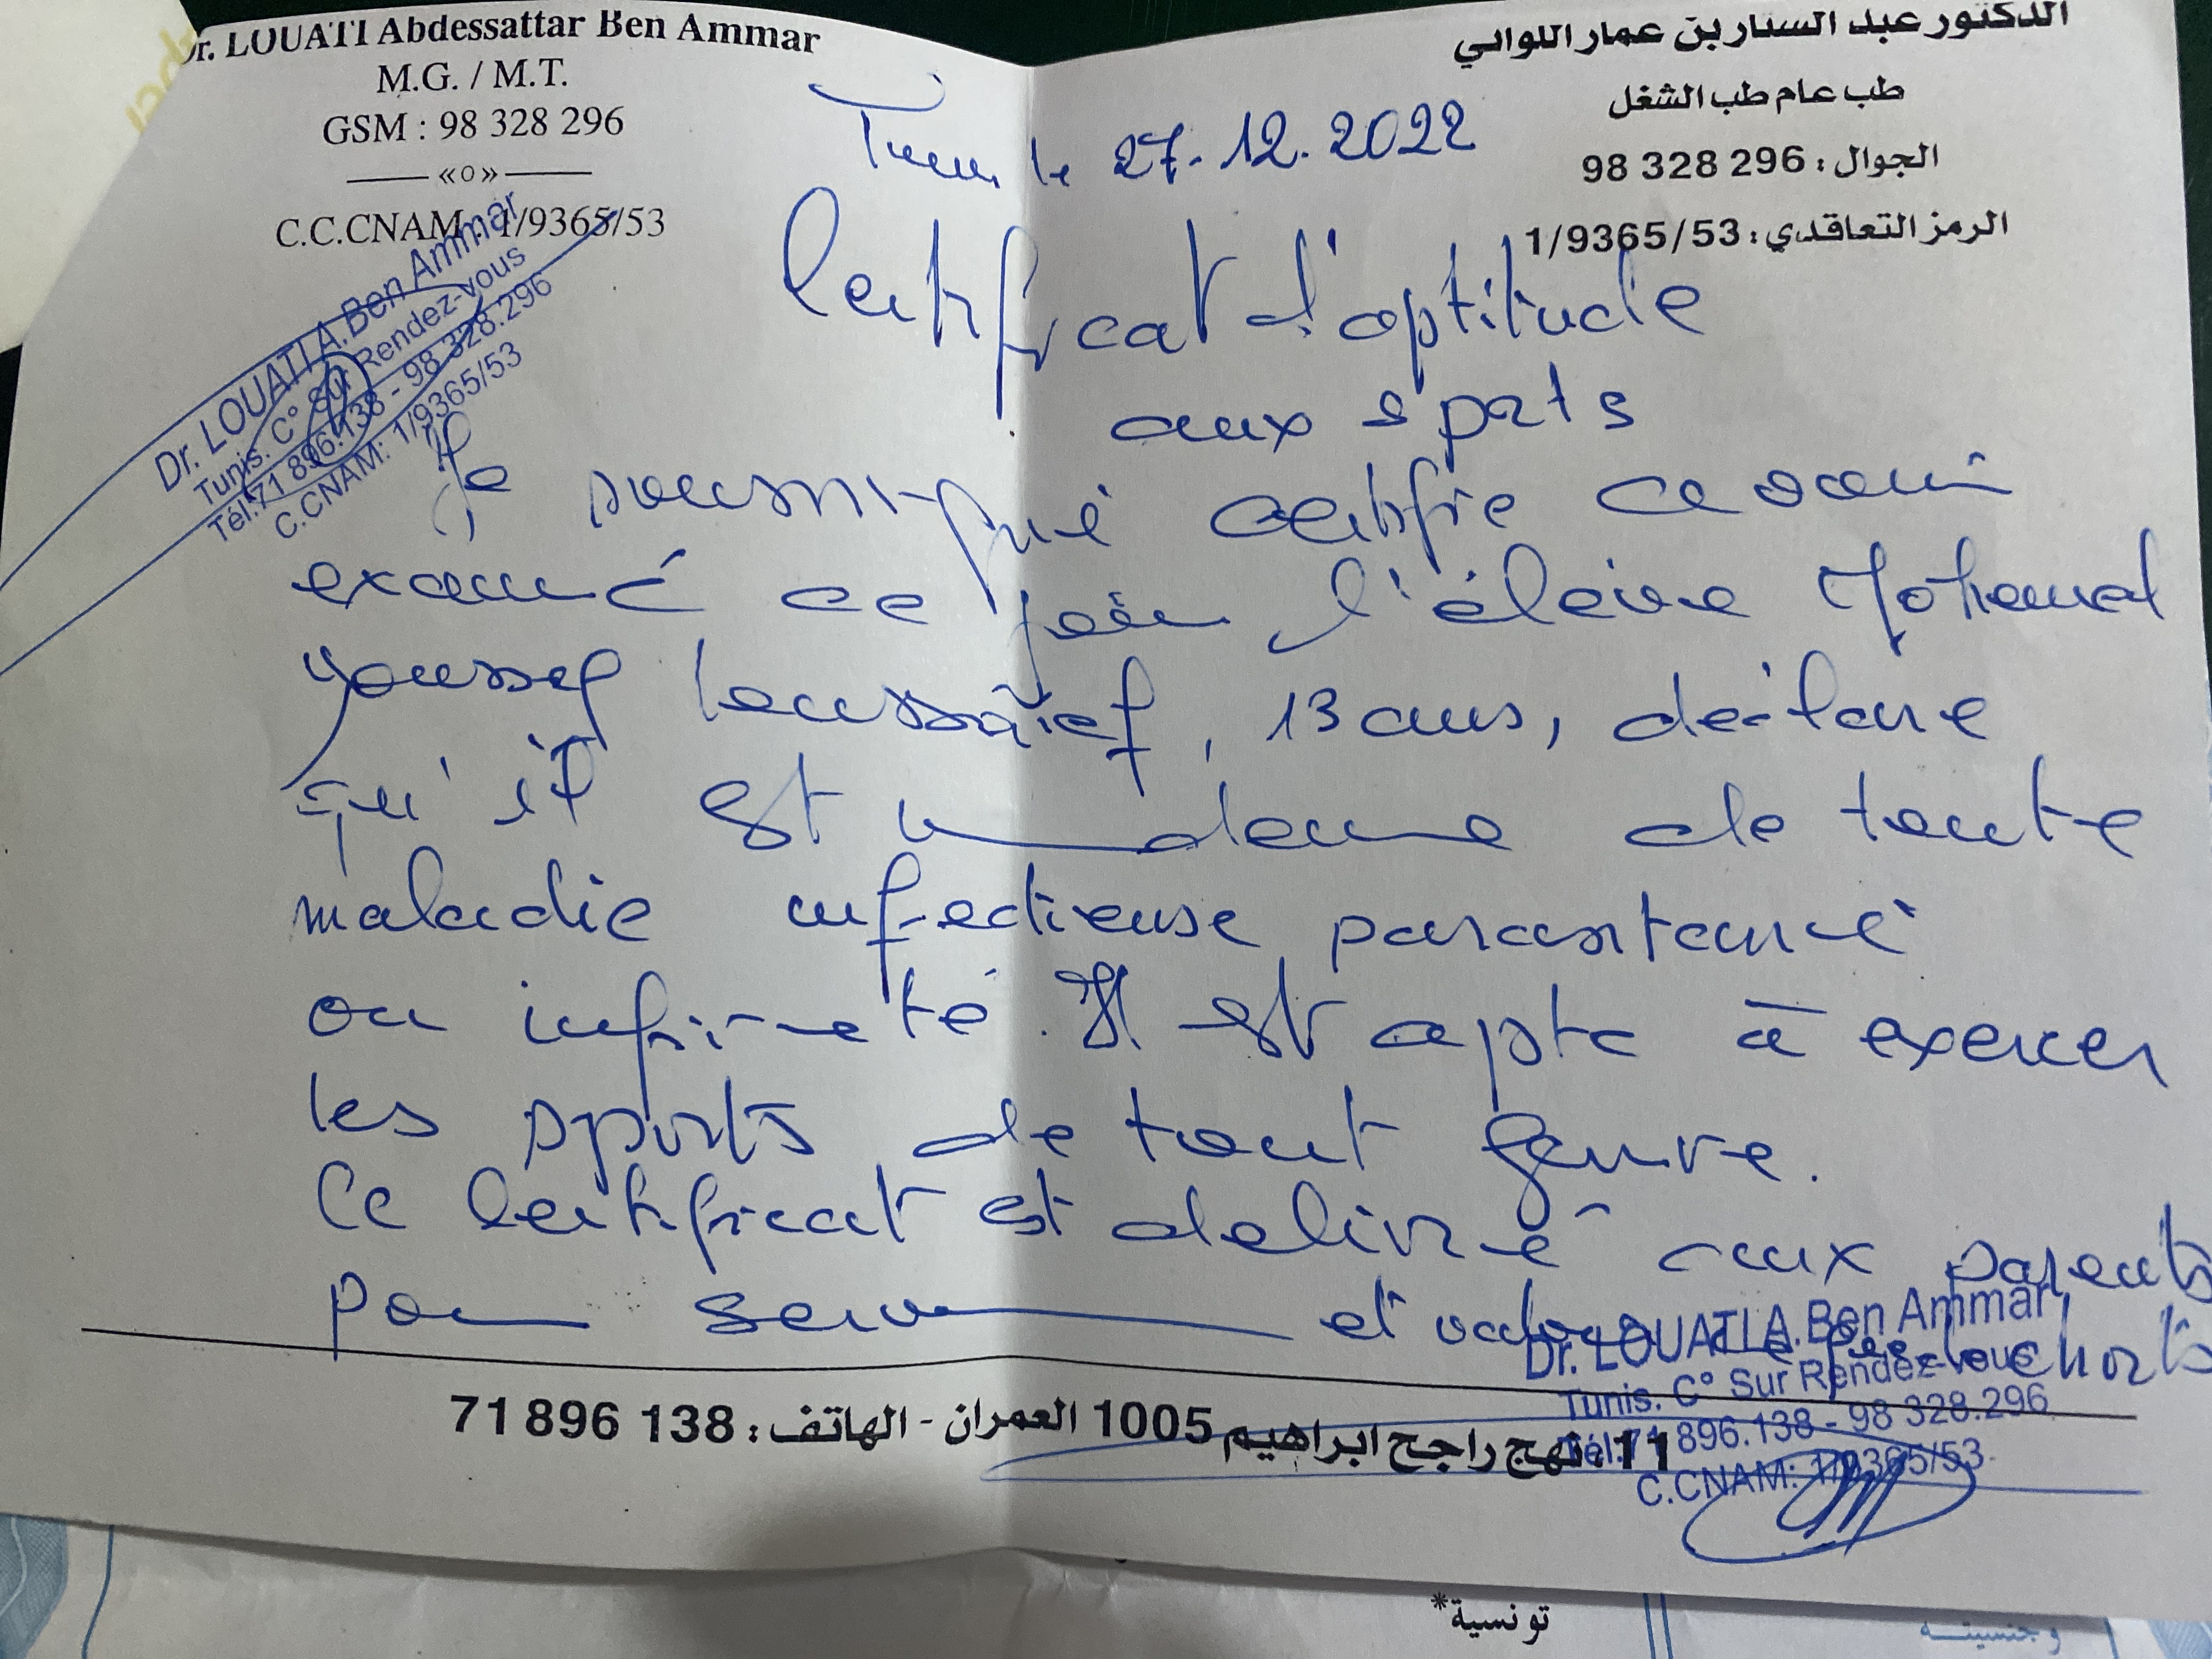 Dr. LOUATI Abdessattar Ben Ammar
M.G. / M.T.
GSM : 98 328 296
«o»
C.C.CNAM : 1/9365/53
الدكتور عبد الستار بن عمار اللواتي
طب عام طب الشغل
الجوال : 98 328 296
الرمز التعاقدي : 1/9365/53
Dr. LOUATI A.Ben Ammar
Tunis. C° Sur Rendez-vous
Tél:71 896.138 - 98 328.296
C.CNAM: 1/9365/53
Tunis le 27.12.2022
Certificat d'aptitude
aux sports
Je soussigné certifie avoir
examiné ce jour l'élève Mohamed
Youssef, 13 ans, déclare
qu'il est indemne de toute
maladie infectieuse parasitaire
ou infirmité. Il est apte à exercer
les sports de tout genre.
Ce certificat est délivré aux parents
pour servir et valoir
Dr. LOUATI A.Ben Ammar
Tunis. C° Sur Rendez-vous
Tél:71 896.138 - 98 328.296
C.CNAM: 1/9365/53
11، نهج راجح ابراهيم 1005 العمران - الهاتف : 138 896 71
تونسية*
وجنسيتـــه